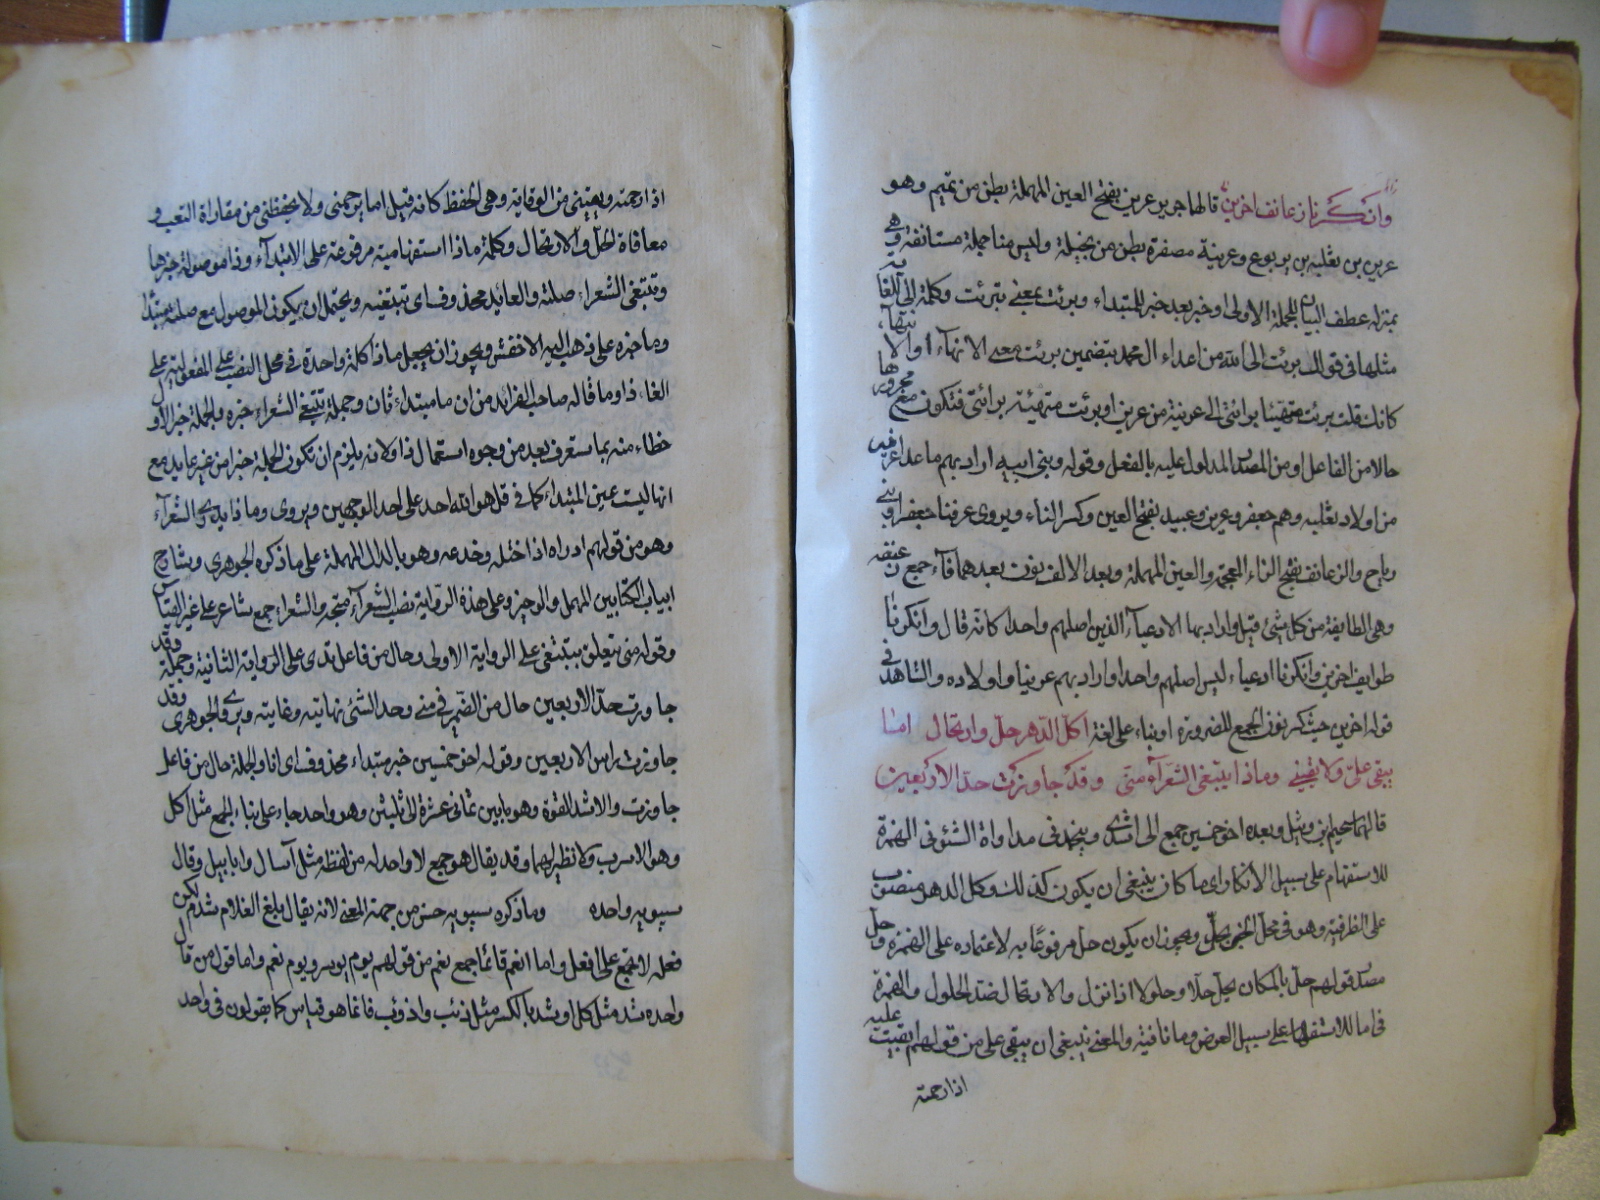 وانكرنا زعانف اخرين قالها جرير عرين بفتح العين المهملة بطن من تميم وهو
عرين بن ثعلبة بن يربوع وعرينة مصغرة بطن من بجيلة وليس منا جملة مستانفة وهي
بمنزلة عطف البيان للجملة الاولى او خبر بعد خبر للمبتداء وبرئت بمعنى تبرئت وكلمة الى
مثلها في قولك برئت الى الله من اعداء ال محمد بتضمين برئت معنى الانهاء
كانك قلت برئت منهيا برائتى الى عرينة من عرين او برئت منتهية برائتى فتكون مع مجرورها
حالا من الفاعل او من المصدر المدلول عليه بالفعل وقوله وبنى ابيه اراد بهم ما عدا عرين
من اولاد ثعلبة وهم جعفر وعرين وعبيد بفتح العين وكسر الثاء ويروى عرفنا جعفرا وبنى
رياح والزعانف بفتح الزاء المعجمة والعين المهملة وبعد الالف نون بعدها فاء جمع زعنفة
وهي الطايفة من كل شئ قيل واراد بها الادعياء الذين اصلهم واحد كانه قال وانكرنا
طوايف اخرين وانكرنا ادعياء ليس اصلهم واحدا واراد بهم عرينا واولاده والشاهد في
قوله اخرين حيث كسر نون الجمع للضرورة او بناء على لغة اكل الدهر حل وارتحال اما
يبقى على ولا يقينى وماذا يبتغى الشعراء منى وقد جاوزت حد الاربعين
قالهما سحيم ابن وثيل وبعده اخو خمسين مجتمع اشدى ونجذنى مداواة الشئون الهمزة
للاستفهام على سبيل الانكار اى ما كان ينبغى ان يكون كذلك وكل الدهر منصوب
على الظرفية وهو في محل الخبر لحل ويجوز ان يكون حل مرفوعا به لاعتماده على الهمزة وحل
مصدر قولهم حل بالمكان يحل حلا وحلولا اذا نزل والارتحال ضد الحلول والهمزة
في اما للاستفهام على سبيل العرض وما نافية والمعنى ينبغى ان يبقى على من قولهم ابقيت عليه
اذا رحمته
اذا رحمته ويقينى من الوقاية وهي الحفظ كانه قيل اما يرحمنى ولا يحفظنى من مقاراة التعب و
معافاة الحل والارتحال وكلمة ماذا استفهامية مرفوعة على الابتداء وذا موصولة خبرها
وتبتغى الشعراء صلته والعايد محذوف اى تبتغيه ويحتمل ان يكون الموصول مع صلته مبتدا
وما خبره على ذهب اليه الاخفش ويجوز ان يجعل ماذا كلمة واحدة في محل النصب على المفعولية على
الغاء ذا وما قاله صاحب الفرائد من ان ما مبتداء ثان وجملة تبتغى الشعراء خبره والجملة خبر الاول
خطاء منه بما ستعرف بعد من وجوه استعمال ذا ولانه يلزم ان تكون الجملة خبرا من غير عايد مع
انها ليست عين المبتداء كما في قل هو الله احد على احد الوجهين ويروى وماذا يدرى الشعراء
وهو من قولهم ادراه اذا ختله وخدعه وهو بالدال المهملة على ما ذكره الجوهرى وشارح
ابيات الكتابين المهمل والوجيز وعلى هذه الرواية نصب الشعراء متجه والشعراء جمع شاعر على غير القياس
وقوله منى يتعلق بتبتغى على الرواية الاولى وحال من فاعل يدرى على الرواية الثانية وجملة وقد
جاوزت حد الاربعين حال من الضمير في منى وحد الشئ نهايته وغايته ويروى الجوهرى وقد
جاوزت راس الاربعين وقوله اخو خمسين خبر مبتداء محذوف اى انا والجملة حال من فاعل
جاوزت والاشد القوة وهو ما بين ثمانى عشرة الى ثلثين وهو واحد جاء على بناء الجمع مثل اكل
وهو الاسرب ولا نظير لهما وقد يقال هو جمع لا واحد له من لفظه مثل آسال وابابيل وقال
سيبويه واحده وما ذكره سيبويه حسن من جهة المعنى لانه يقال بلغ الغلام شدته لكن
فعلة لا تجمع على افعل واما انعم فانما جمع نعم من قولهم يوم بوس ويوم نعم واما قول من قال
واحده شد مثل كلب او شد بالكسر مثل ذئب واذؤب فانما هو قياس كما يقولون في واحد